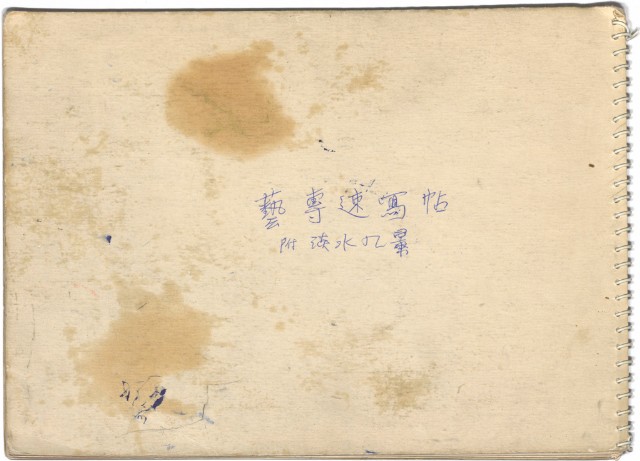 藝專速寫帖
附淡水九景